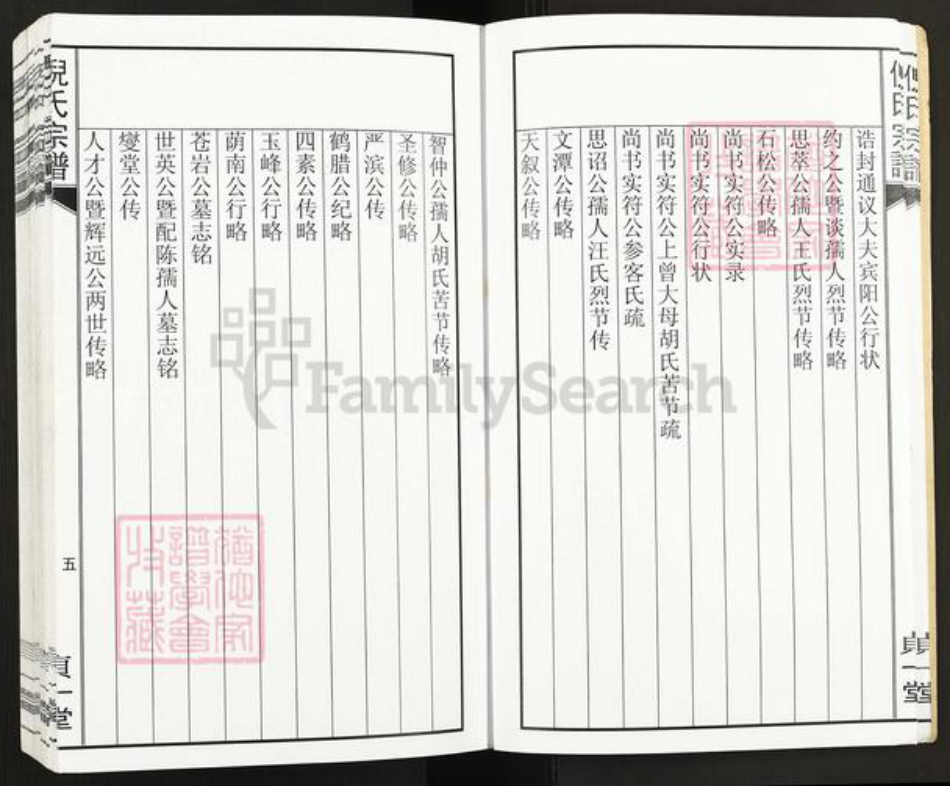 倪氏宗谱
诰封通议大夫宾阳公行状
约之公暨谈孺人烈节传略
思萃公孺人王氏烈节传略
石松公传略
尚书实符公实录
尚书实符公行状
尚书实符公上曾大母胡氏苦节疏
尚书实符公参客氏疏
思诏公孺人汪氏烈节传
文潭公传略
天叙公传略
貞一堂
智仲公孺人胡氏苦节传略
圣修公传略
严滨公传
鹤腊公纪略
四素公传略
玉峰公行略
荫南公行略
苍岩公墓志铭
世英公暨配陈孺人墓志铭
燮堂公传
人才公暨辉远公两世传略
倪氏宗譜
五
貞一堂
FamilySearch
猶他家
譜學會
收藏